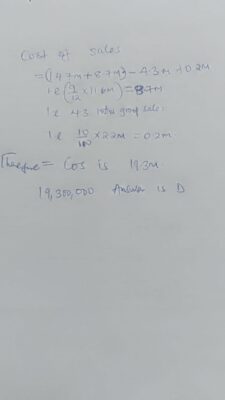 Cost of sales
= (14.7m + 8.7m) - 4.3m + 0.2m
i.e (9/12 × 11.6m) = 8.7m
i.e 4.3 intra group sales
i.e 10/100 × 2.2m = 0.2m
Therefore = Cos is 19.3m
19,300,000 Answer is D